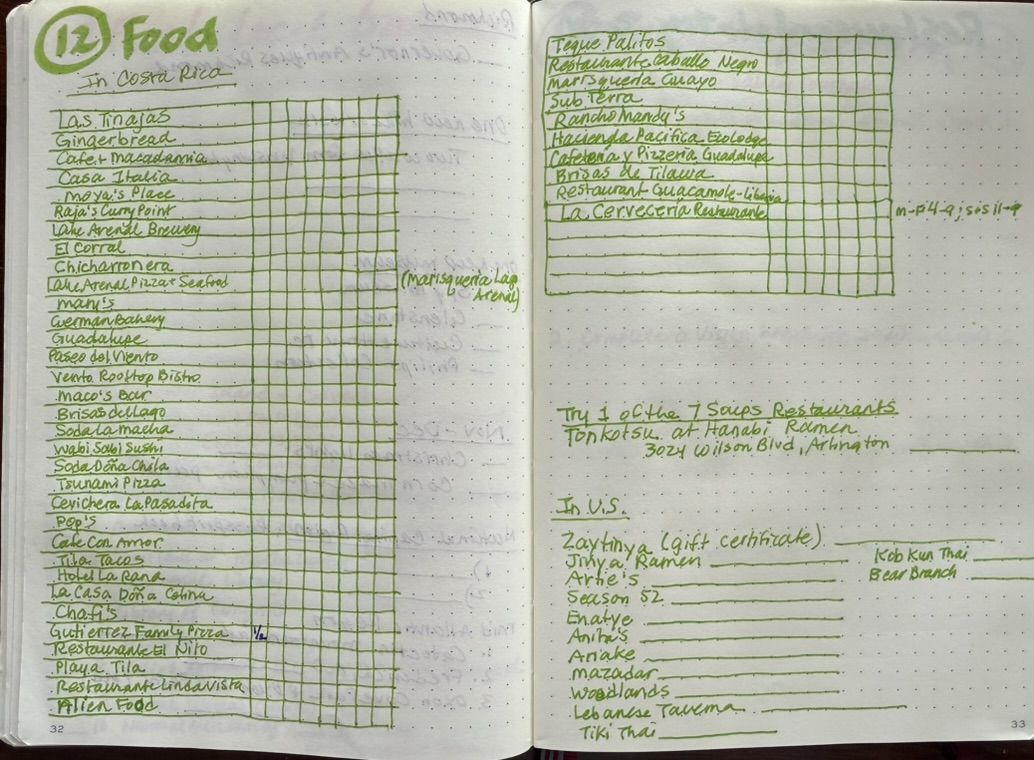 12 Food
In Costa Rica
Las Tinajas
Gingerbread
Cafe + Macadamia
Casa Italia
Moya's Place
Raja's Curry Point
Lake Arenal Brewery
El Corral
Chicharronera
Lake Arenal Pizza + Seafood (Marisquería Lago Arenal)
Mary's
German Bakery
Guadalupe
Paseo del Viento
Vento Rooftop Bistro
Maco's Bar
Brisas del Lago
Soda La Macha
Wabi Sabi Sushi
Soda Doña Chila
Tsunami Pizza
Cevichera La Pasadita
Pop's
Cafe Con Amor
Tila Tacos
Hotel La Rana
La Casa Doña Colina
Chafi's
Gutierrez Family Pizza
Restaurante El Nito
Playa Tila
Restaurante Linda Vista
Alien Food
32
Teque Palitos
Restaurante Caballo Negro
Marisquería Guayo
Sub Terra
Rancho Mandy's
Hacienda Pacifica Ecolodge
Cafetería y Pizzería Guadalupe
Brisas de Tilawa
Restaurant Guacamole-Liberia
La Cervecería Restaurante
Try 1 of the 7 Soups Restaurants
Tonkotsu at Hanabi Ramen
3024 Wilson Blvd, Arlington
In U.S.
Zaytinya (gift certificate)
Jinya Ramen
Artie's
Season 52
Enatye
Anita's
Ariake
Mazadar
Woodlands
Lebanese Taverna
Tiki Thai
Kob Kun Thai
Bear Branch
33